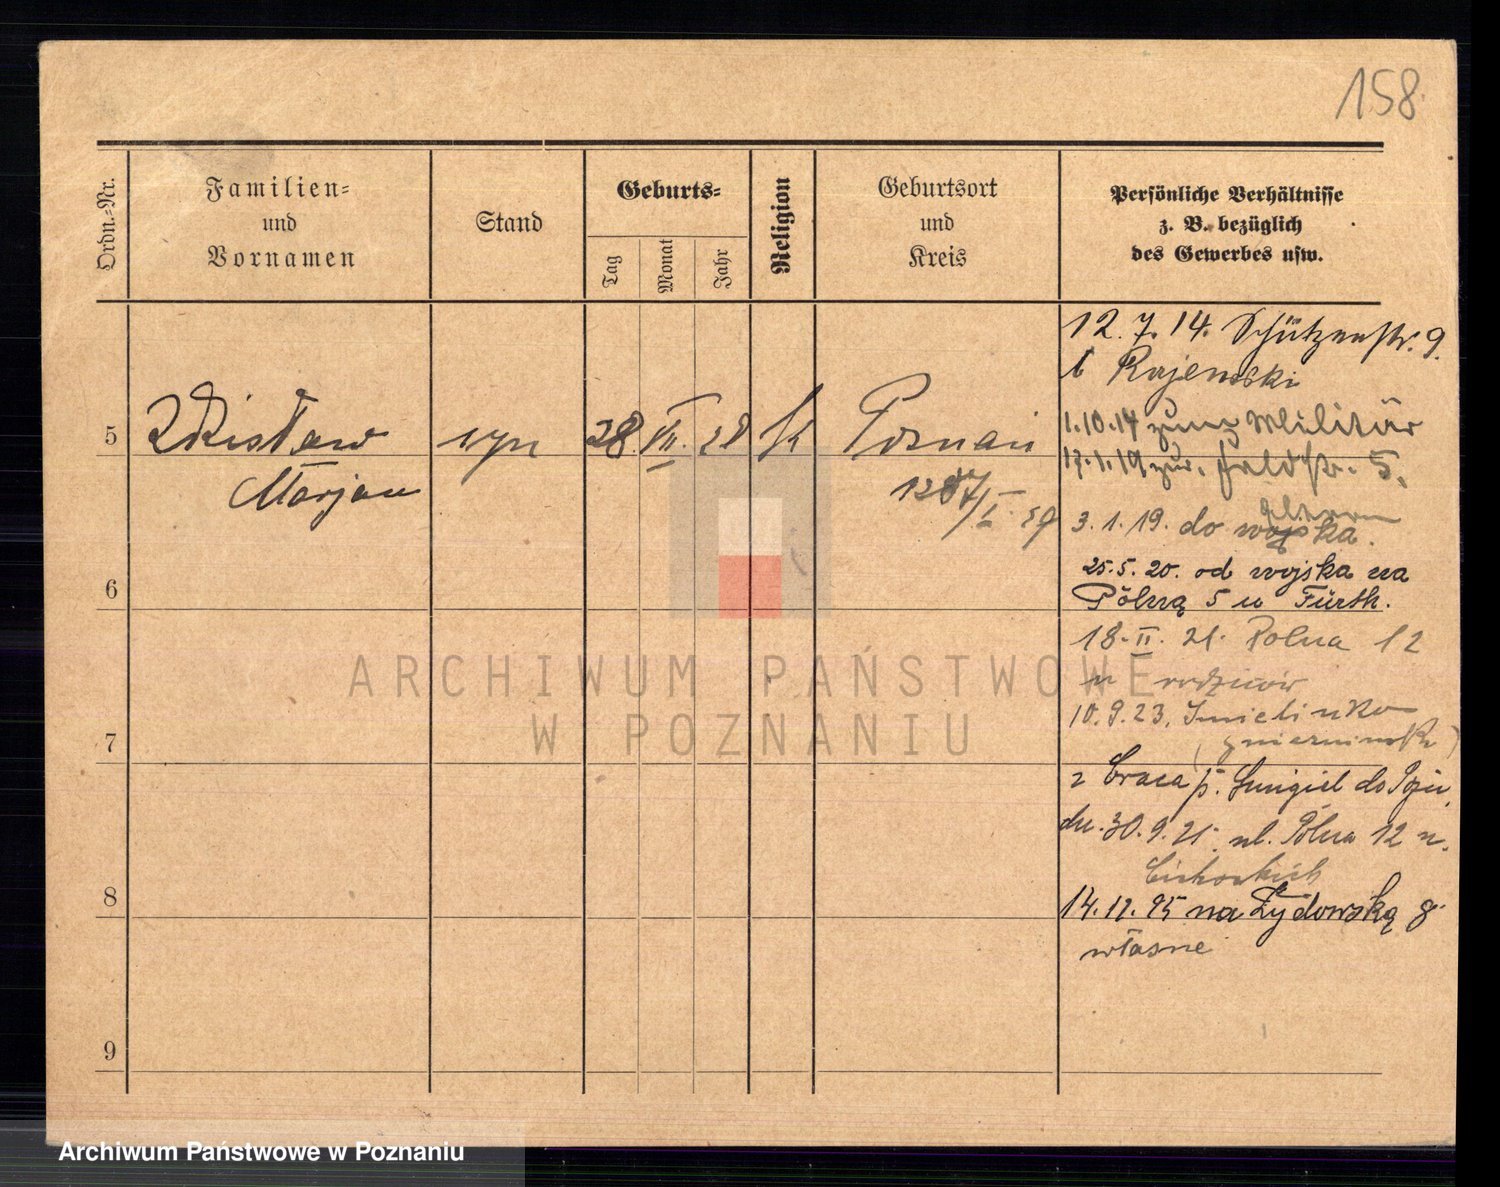 158
Ordn.-Nr.
Familien-
und
Vornamen
Stand
Geburts-
Tag
Monat
Jahr
Religion
Geburtsort
und
Kreis
Persönliche Verhältnisse
z. B. bezüglich
des Gewerbes usw.
5
Zdzisław
Marjan
syn
28. VII. 28
k
Poznań
12. 7. 14. Schützenstr. 9.
b Rajewski
1.10.14 zum Militär
17.1.19 zur. Feldstr. 5.
Eltern
3. 1. 19. do wojska.
25. 5. 20. od wojska na
Pólną 5 u Fürth.
18. II. 21. Polna 12
u rodziców
10. 9. 23. Imielinko
6
7
z
dn. 30. 9. 25. ul. Pólna 12 u.
Cichockich
8
na Żydowską 8
własne
9
ARCHIWUM PAŃSTWOWE
W POZNANIU
Archiwum Państwowe w Poznaniu